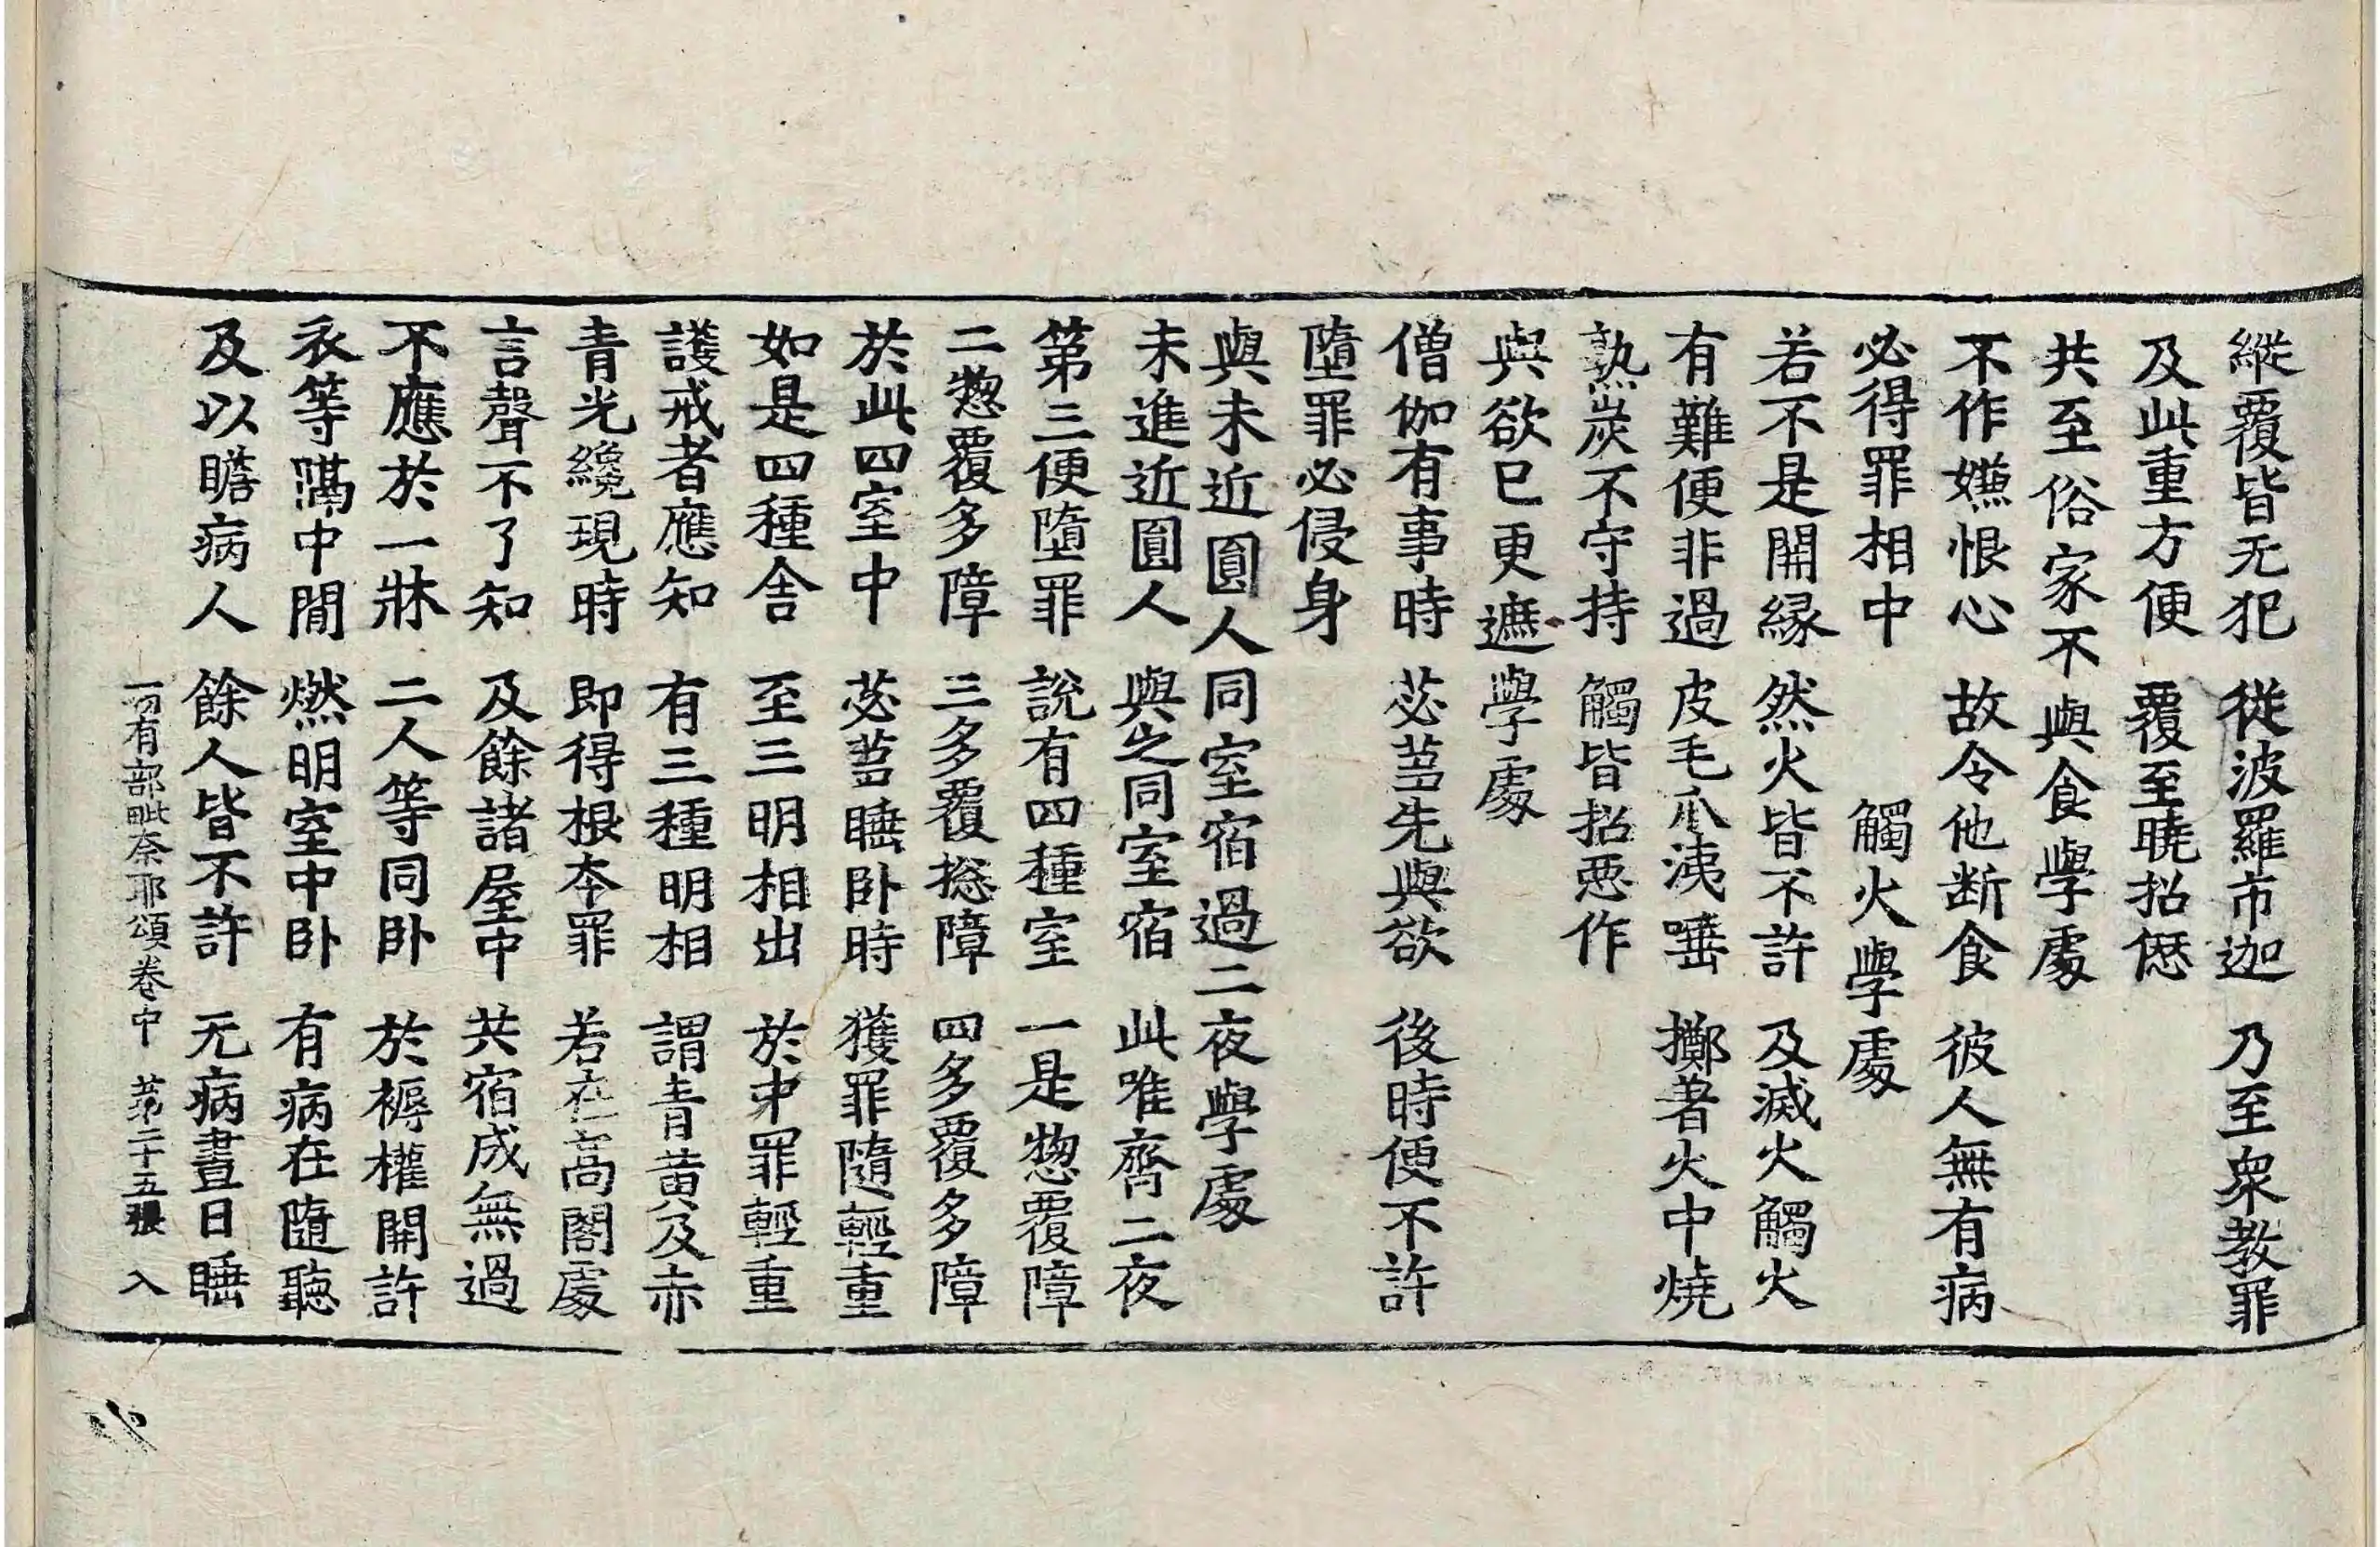 縱覆皆无犯　從波羅市迦　乃至衆教罪
及此重方便　覆至曉招愆
共至俗家不與食學處
不作嫌恨心　故令他断食　彼人無有病
必得罪相中　觸火學處
若不是開縁　然火皆不許　及滅火觸火
有難便非過　皮毛爪洟唾　擲著火中燒
熟炭不守持　觸皆招惡作
與欲已更遮學處
僧伽有事時　苾蒭先與欲　後時便不許
墮罪必侵身
與未近圓人同室宿過二夜學處
未進近圓人　與之同室宿　此唯齊二夜
第三便墮罪　說有四種室　一是惣覆障
二惣覆多障　三多覆捴障　四多覆多障
於此四室中　苾蒭睡卧時　獲罪隨輕重
如是四種舍　至三明相出　於中罪輕重
護戒者應知　有三種明相　謂青黄及赤
青光纔現時　即得根本罪　若在高閣處
言聲不了知　及餘諸屋中　共宿成無過
不應於一牀　二人等同卧　於褥權開許
衣等隔中間　燃明室中卧　有病在隨聽
及以瞻病人　餘人皆不許　无病晝日睡
一切有部毗奈耶頌卷中　第二十五張　入